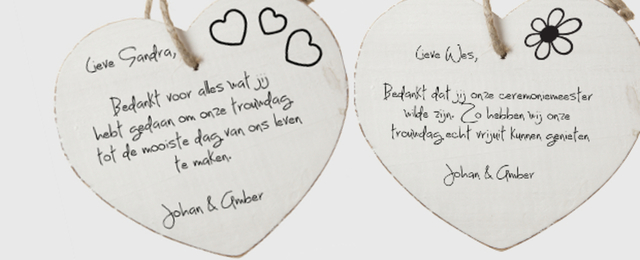 Lieve Sandra,
Bedankt voor alles wat jij
hebt gedaan om onze trouwdag
tot de mooiste dag van ons leven
te maken.
Johan & Amber
Lieve Wes,
Bedankt dat jij onze ceremoniemeester
wilde zijn. Zo hebben wij onze
trouwdag echt vrijuit kunnen genieten
Johan & Amber